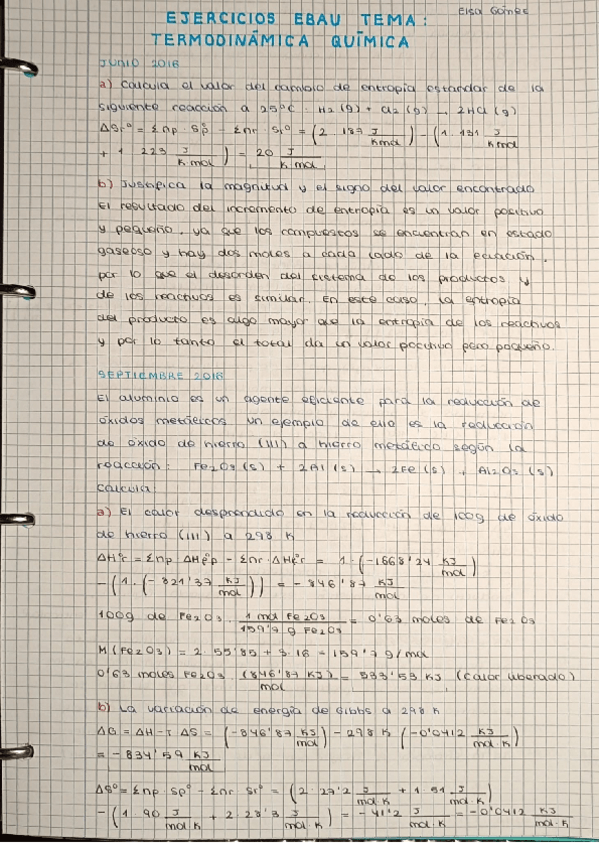 Elsa Gómez
EJERCICIOS EBAU TEMA:
TERMODINÁMICA QUÍMICA
JUNIO 2018
a) Calcula el valor del cambio de entropía estándar de la
siguiente reacción a 25ºC: H2 (g) + Cl2 (g) → 2HCl (g)
ΔSrº = Σnp · Spº - Σnr · Srº = (2 · 187 J/K mol) - (1 · 131 J/K mol
+ 1 · 223 J/K mol) = 20 J/K mol
b) Justifica la magnitud y el signo del valor encontrado
El resultado del incremento de entropía es un valor positivo
y pequeño, ya que los compuestos se encuentran en estado
gaseoso y hay dos moles a cada lado de la ecuación,
por lo que el desorden del sistema de los productos y
de los reactivos es similar. En este caso, la entropía
del producto es algo mayor que la entropía de los reactivos
y por lo tanto el total da un valor positivo pero pequeño.
SEPTIEMBRE 2018
El aluminio es un agente eficiente para la reducción de
óxidos metálicos. Un ejemplo de ello es la reducción
de óxido de hierro (III) a hierro metálico según la
reacción: Fe2O3 (s) + 2Al (s) → 2Fe (s) + Al2O3 (s)
Calcula:
a) El calor desprendido en la reducción de 100g de óxido
de hierro (III) a 298 K
ΔHrº = Σnp · ΔHfºp - Σnr · ΔHfºr = 1 · (-1668'24 KJ/mol)
- (1 · (- 821'37 KJ/mol)) = - 846'87 KJ/mol
100g de Fe2O3 · 1 mol Fe2O3/159'7 g Fe2O3 = 0'63 moles de Fe2O3
M (Fe2O3) = 2 · 55'85 + 3 · 16 = 159'7 g/mol
0'63 moles Fe2O3 · (846'87 KJ)/mol = 533'53 KJ (calor liberado)
b) La variación de energía de Gibbs a 298 K
ΔG = ΔH - T · ΔS = (-846'87 KJ/mol) - 298 K (-0'0412 KJ/mol·K)
= - 834'59 KJ/mol
ΔSº = Σnp · Spº - Σnr · Srº = (2 · 27'2 J/mol·K + 1 · 51 J/mol·K)
- (1 · 90 J/mol·K + 2 · 28'3 J/mol·K) = - 41'2 J/mol·K = -0'0412 KJ/mol·K